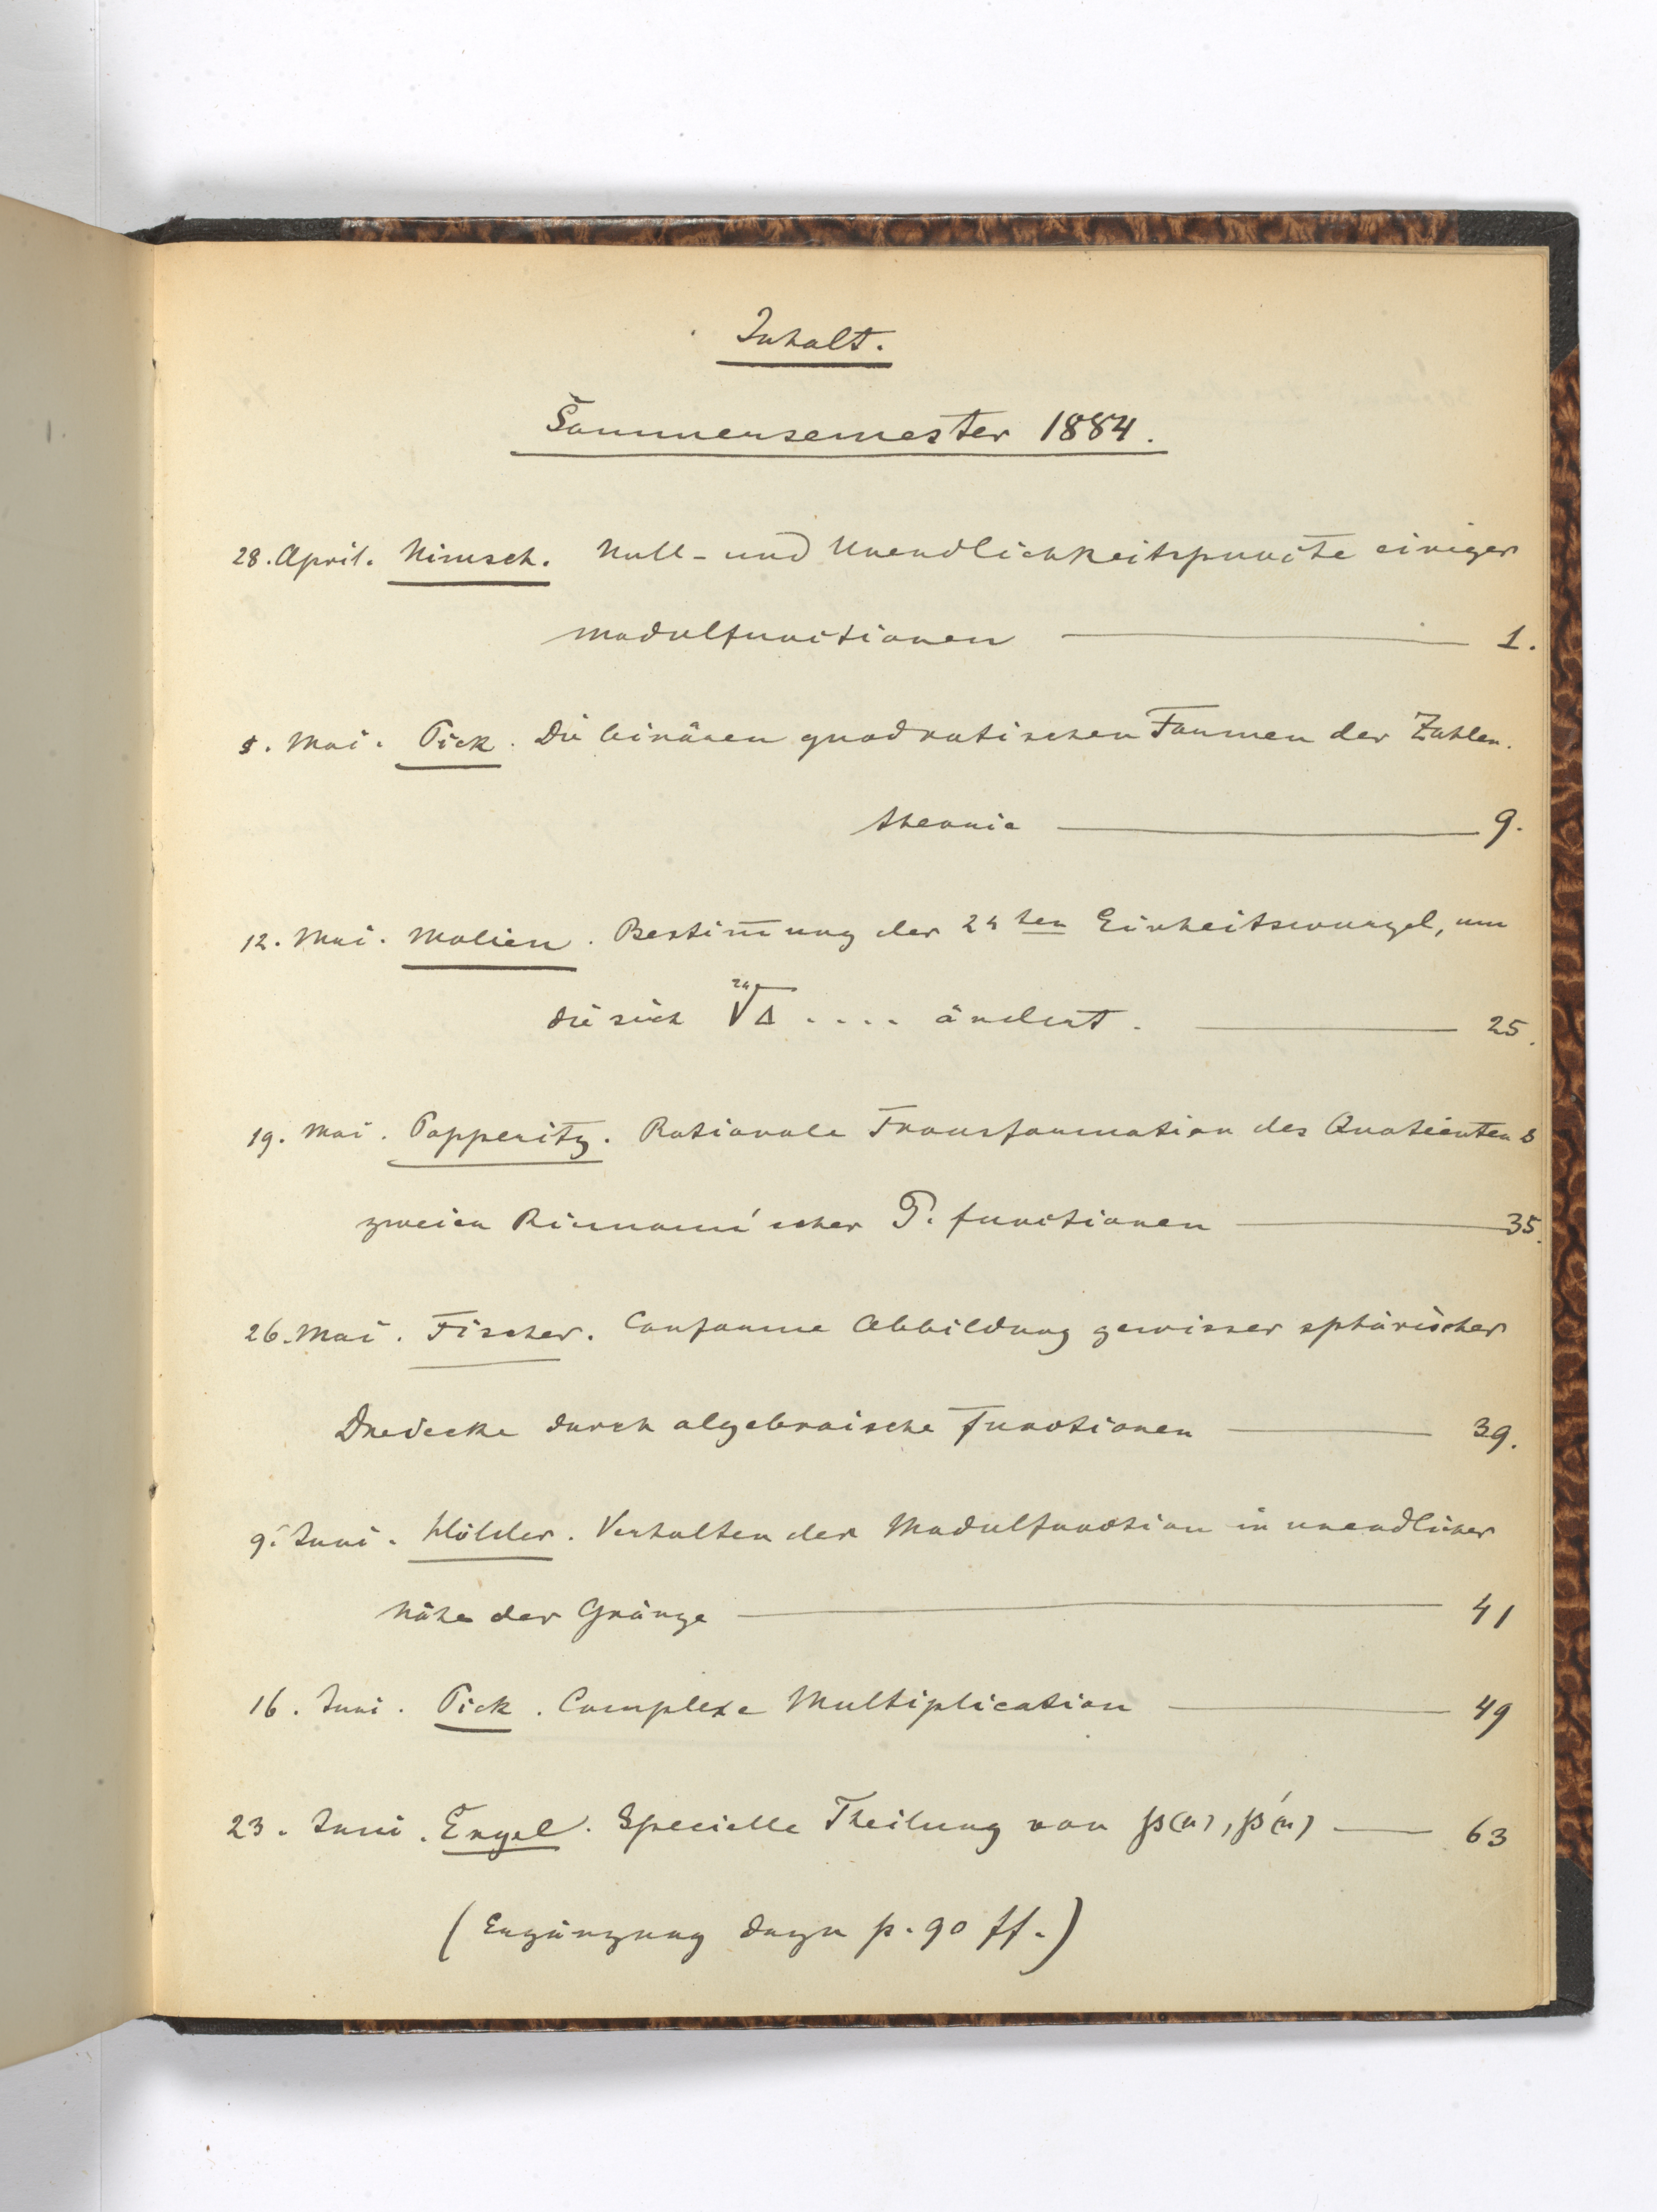 Inhalt.
Sommersemester 1884.
28. April. Nimsch. Null- und Unendlichkeitspuncte einiger
Modulfunctionen 1.
5. Mai. Pick. Die binären quadratischen Formen der Zahlen-
theorie 9.
12. Mai. Molien. Bestim̅ung der 24ten Einheitswurzel, um
die sich ²⁴√Δ .... ändert. 25.
19. Mai. Papperitz. Rationale Transformation des Quotienten s
zweier Riemann'scher P. functionen 35.
26. Mai. Fischer. Conforme Abbildung gewisser sphärischer
Dreiecke durch algebraische Functionen 39.
9. Juni. Hölder. Verhalten der Modulfunction in unendlicher
Nähe der Gränze 41
16. Juni. Pick. Complexe Multiplication 49
23. Juni. Engel. Specielle Theilung von ℘(u), ℘'(u) 63
(Ergänzung dazu p. 90 ff.)